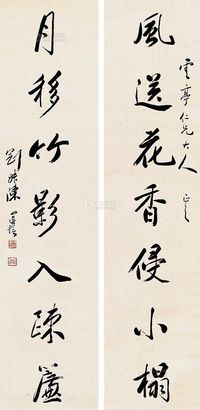 風送花香侵小榻
雲亭仁兄大人 正之
月移竹影入疎簾
劉春霖